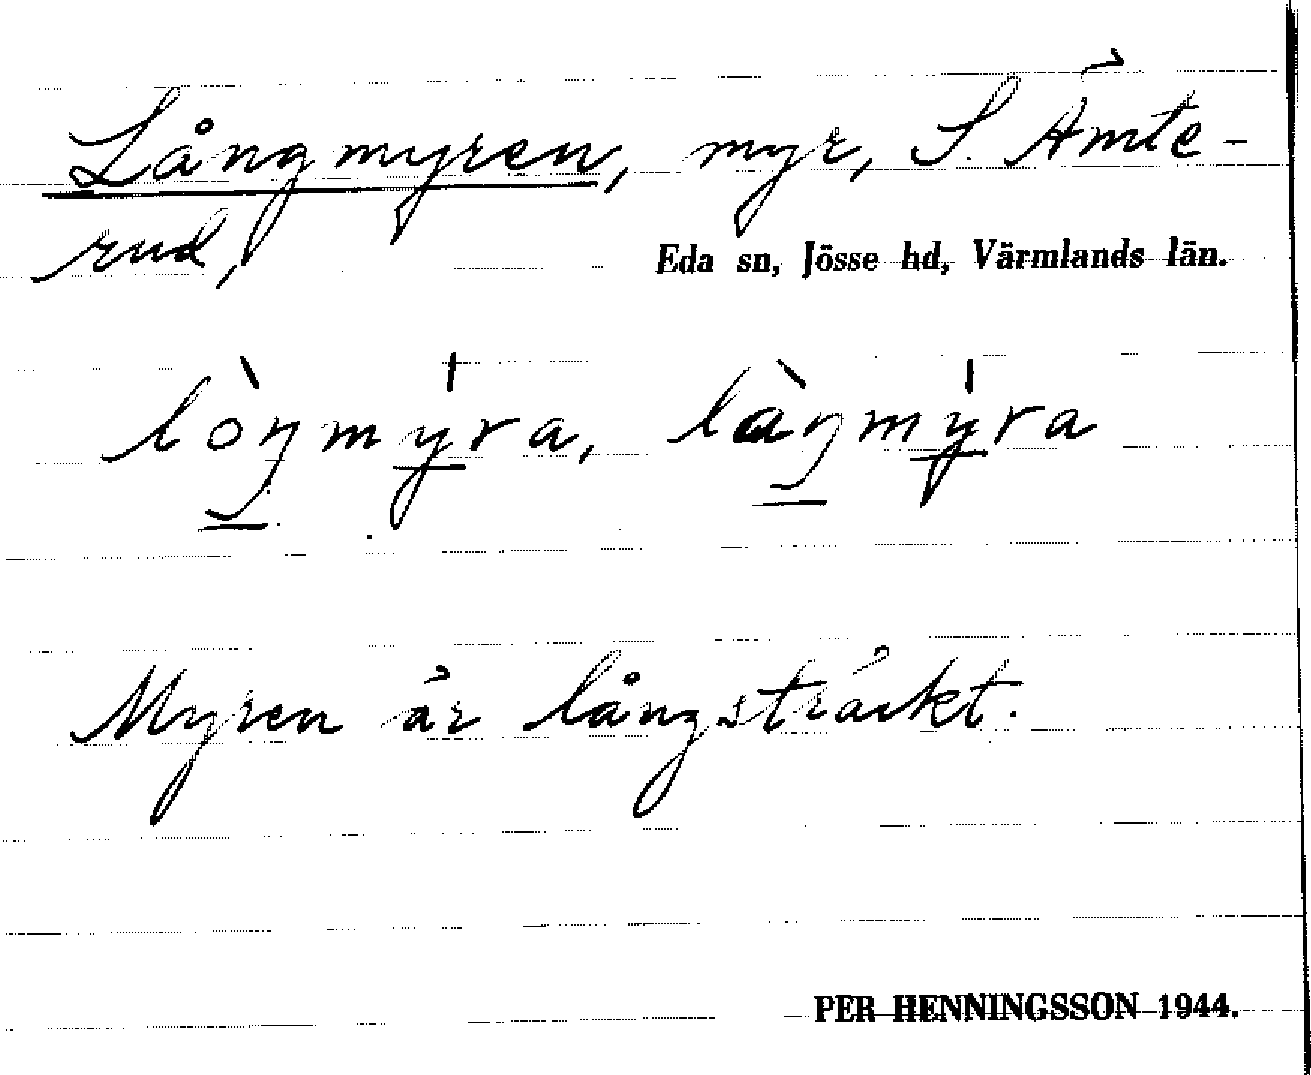 Långmyren, myr, S. Ämte-
rud,
Eda sn, Jösse hd, Värmlands län.
lòŋmy̠̍ra, làŋmy̠̍ra
Myren är långsträckt.
PER HENNINGSSON 1944.